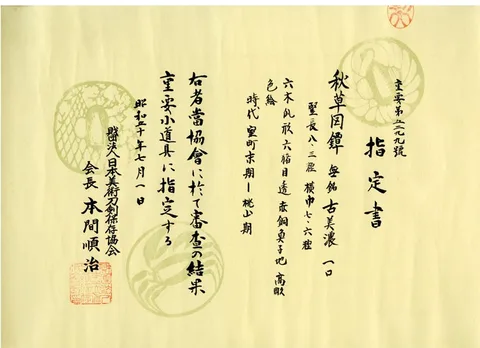 重要第二九九號
指定書
秋草図鐔 無銘 古美濃 一口
竪長八・三糎 横巾七・六糎
六木瓜形 六猪目透 赤銅魚子地 高彫
色絵
時代 室町末期ー桃山期
右者當協會に於て審査の結果
重要小道具に指定する
昭和十年七月一日
財団法人日本美術刀剣保存協会
会長 本間順治